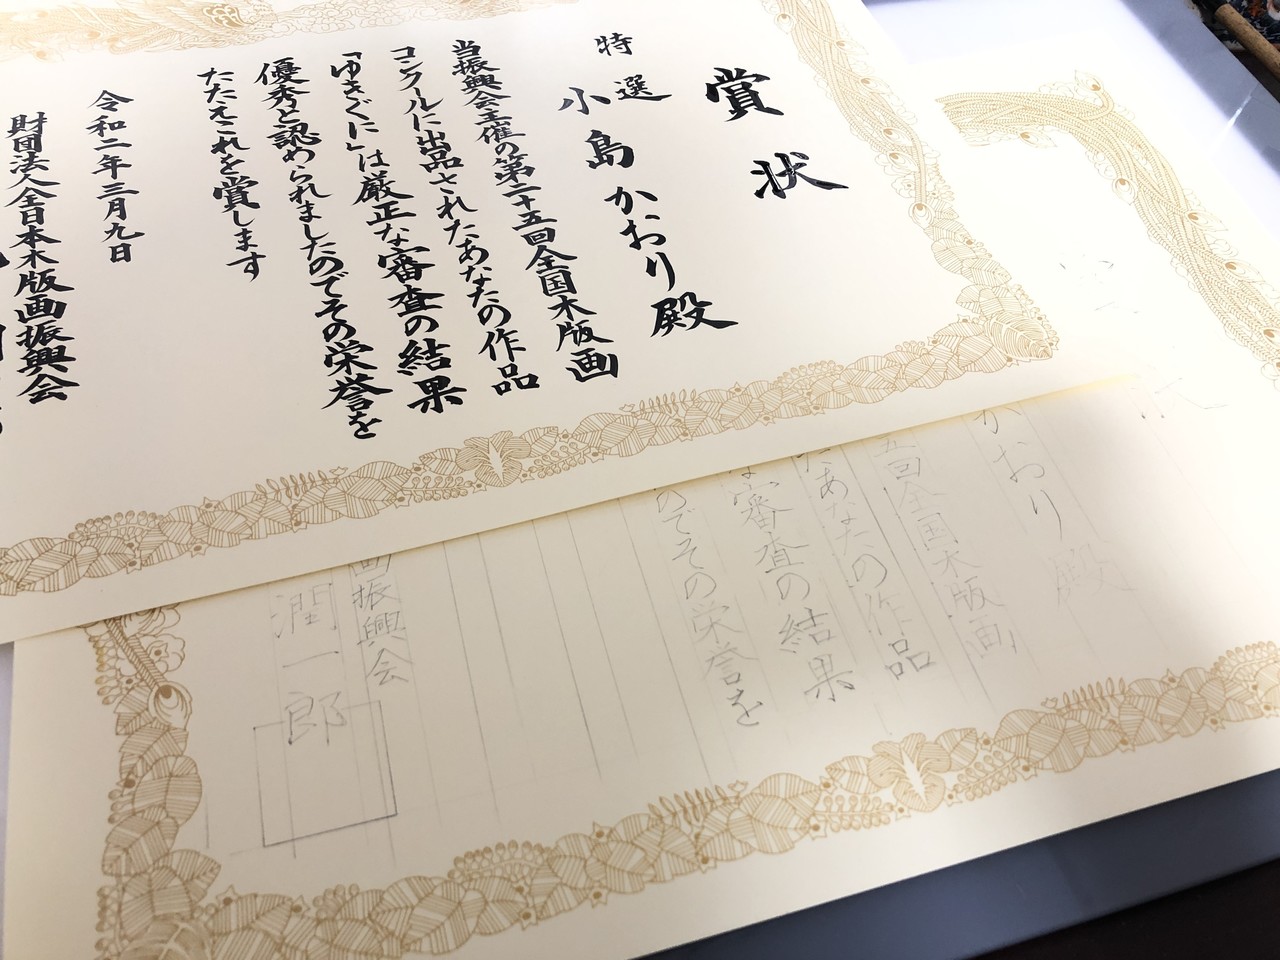 賞状
特選
小島かおり殿
当振興会主催の第二十五回全国木版画
コンクールに出品されたあなたの作品
「ゆきぐに」は厳正な審査の結果
優秀と認められましたのでその栄誉を
たたえこれを賞します
令和二年三月九日
財団法人全日本木版画振興会
かおり殿
五回全国木版画
たあなたの作品
な審査の結果
のでその栄誉を
画振興会
潤一郎